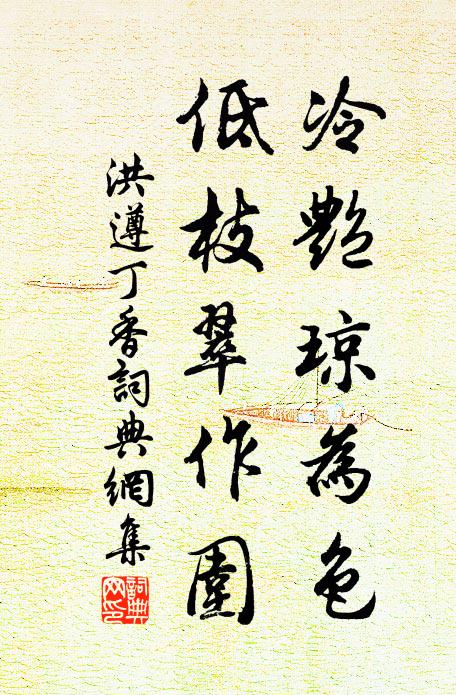 冷艷琼為色
低枝翠作圍
洪遵丁香詞典網集
詞典网印